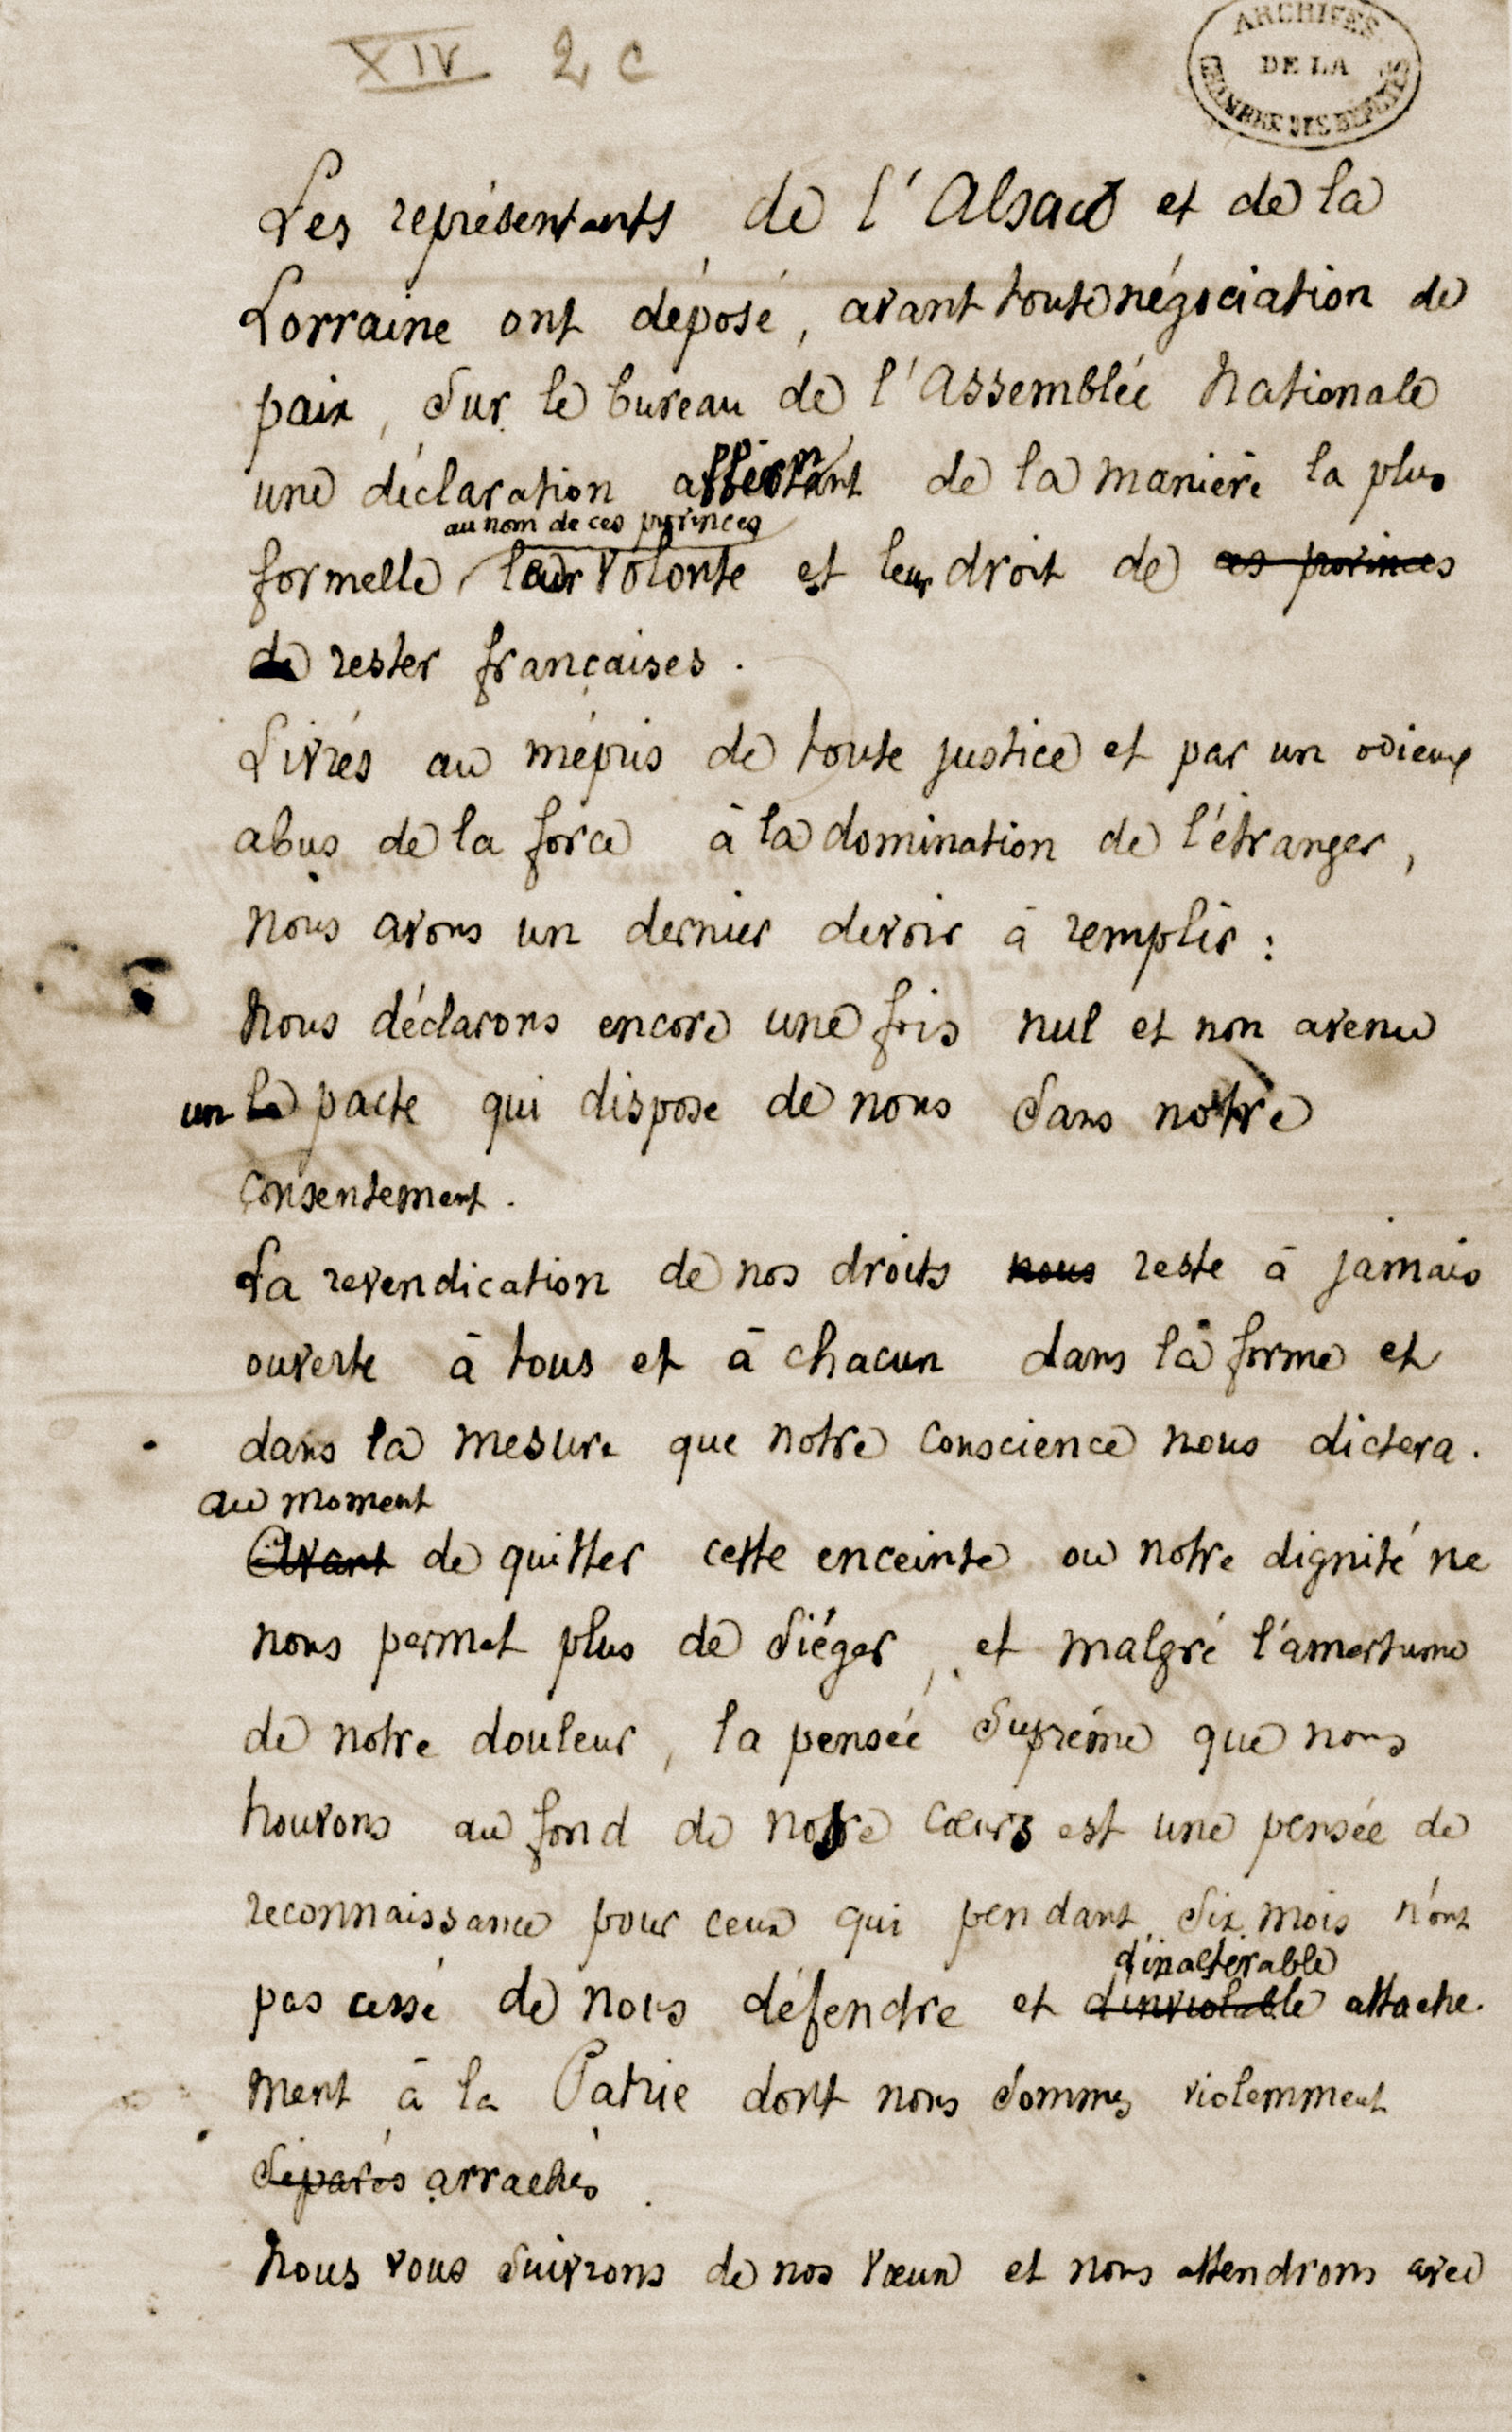 XIV 2 C
ARCHIVES
DE LA
CHAMBRE DES DÉPUTÉS
Les représentants de l'Alsace et de la
Lorraine ont déposé, avant toute négociation de
paix, sur le bureau de l'Assemblée Nationale
une déclaration affirmant de la manière la plus
au nom de ces provinces
formelle leur volonté et leur droit de ces provinces
de rester françaises.
Livrés au mépris de toute justice et par un odieux
abus de la force à la domination de l'étranger,
nous avons un dernier devoir à remplir :
Nous déclarons encore une fois nul et non avenu
un le pacte qui dispose de nous sans notre
consentement.
La revendication de nos droits nous reste à jamais
ouverte à tous et à chacun dans la forme et
dans la mesure que notre conscience nous dictera.
au moment
Avant de quitter cette enceinte où notre dignité ne
nous permet plus de siéger, et malgré l'amertume
de notre douleur, la pensée suprême que nous
trouvons au fond de nos cœurs est une pensée de
reconnaissance pour ceux qui pendant six mois n'ont
d'inaltérable
pas cessé de nous défendre et d'inviolable attache-
ment à la Patrie dont nous sommes violemment
séparés arrachés.
Nous vous suivrons de nos vœux et nous attendrons avec